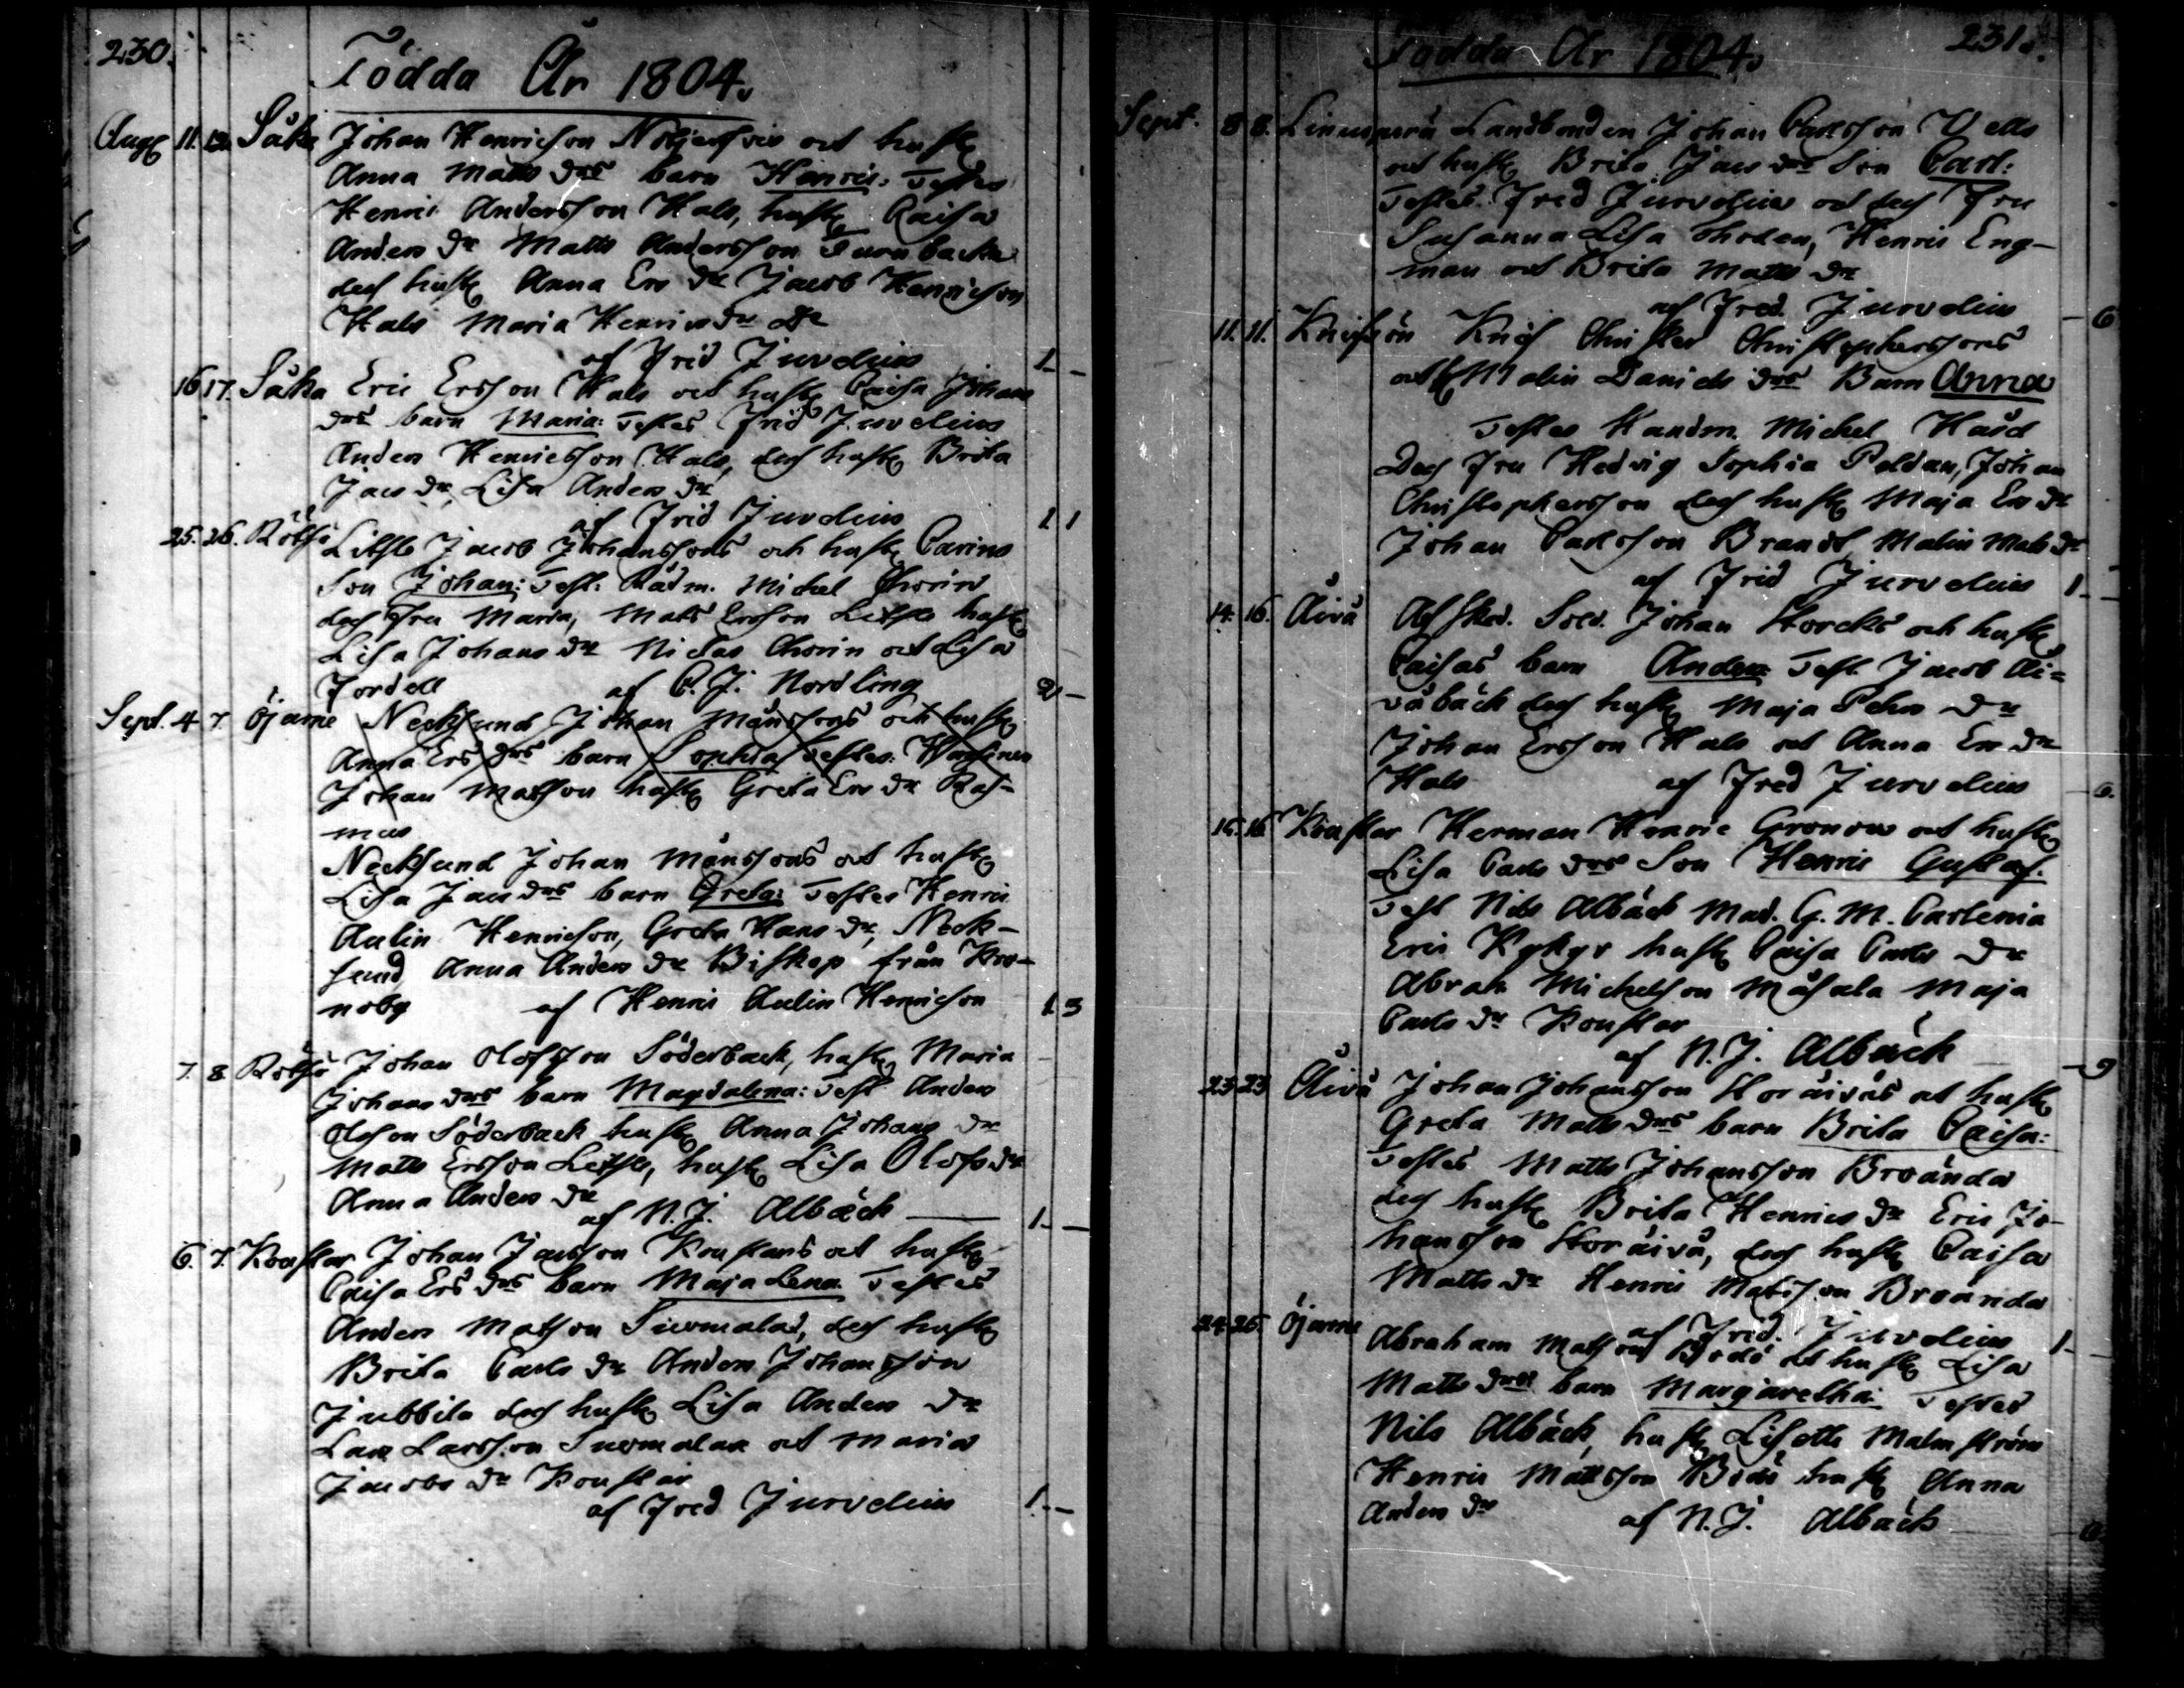 230.
Födda År 1804.
Aug 11. 12. Såka Johan Henricson och hust
Anna Matts drs barn Henric: Testes
Henric Andersson Hals, hust Caisa
Anders dr Matts Andersson
dess hust Anna Ers dr Jacob Henricson
Hals Maria Henrics dr
af Frid Jurvelius 1 –
16 17. Såka Eric Ersson Hals och hust Caisa Johans
drs barn Maria: Testes Frid Jurvelius
Anders Henricsson Hals, dess hust Brita
Jacs dr, Lisa Anders dr
af Frid Jurvelius 1 1
25. 26. Rötsö Jacob Johanssons och hust Carins
Son Johan: Test: Rådm. Michel Chorin
dess Fru Maria, Mats Ersson hust
Lisa Johans dr Niclas Chorin och Lisa
Fordell af C. J. Nordling 2 –
Sept. 4 7. Öjarne Necksund Johan Månssons och hust
Anna Ers drs barn Sophia Testes:
Johan Matson hust Greta Ers dr Ras-
mus
Necksund Johan Månssons och hust
Lisa Jacs drs barn Greta: Testes Henric
Aulin Henricson, Greta Hans dr, Neck-
sund Anna Anders dr Biskop från Kro-
noby af Henric Aulin Henricson 1 3
7. 8 Rötsö Johan Olofsson Söderback, hust Maria
Johans drs barn Magdalena: Test Anders
Olofson Söderback hust Anna Johans dr
Matts Ersson hust Lisa Olofs dr
Anna Anders dr
af N. J. Albäck 1 –
6. 7. Konstar Johan Jacsson Konstars och hust
Caisa Ers drs barn Maja Lena Testes
Anders Matson Suomalas, dess hust
Brita Carls dr Anders Johansson
Jubbila dess hust Lisa Anders dr
Lars Larsson Suomalas och Maria
Jacobs dr Konstar
af Fred Jurvelius 1. –
Födda År 1804. 231.
Sept. 8 8. Landbonden Johan Carlsson
och hust Brita Jacs drs Son Carl:
Testes Fred Jurvelius och dess Fru
Susanna Lisa Henric Eng-
man och Brita Matts dr
af Fred. Jurvelius – 6
11. 11. Knifsön Knif Christer Christophersons
och h Malin Daniels drs Barn Anna
Testes Handm. Michel Hård
Dess Fru Hedvig Sophia Peldan, Johan
Christophersson dess hust Maja Ers dr
Johan Carlsson Brandt Malin Mats dr
af Frid Jurvelius 1 –
14. 16. Åivå Afsked. Sold. Johan Storcks och hust
Caisas barn Anders Test Jacob Åi-
våbäck dess hust Maja Pehrs dr
Johan Ersson Hals och Anna Ers dr
Hals af Fred Jurvelius – 6.
15. 16 Konstar Herman Henric Gronow och hust
Lisa Carls drs Son Henric Gustaf.
Test Nils Albäck Mad. G. M. Carlenia
Eric Kykyr hust Caisa Carls dr
Abrah Michelson Måsala Maja
Carls dr Konstar
af N. J. Albäck – 9
23 23 Åivå Johan Johansson Storåivås och hust
Greta Matts drs barn Brita Caisa:
Testes Matts Johansson Broända
dess hust Brita Henrics dr Eric Jo-
hansson Storåivå, dess hust Caisa
Matts dr Henric Matsson Broända
af Frid. Jurvelius 1 –
24 25 Öjarne Abraham Matsons Bodö och hust Lisa
Matts drs barn Margaretha: Testes
Nils Albäck, hust Lisette Malmström
Henric Mattsson Bodö hust Anna
Anders dr af N. J. Albäck